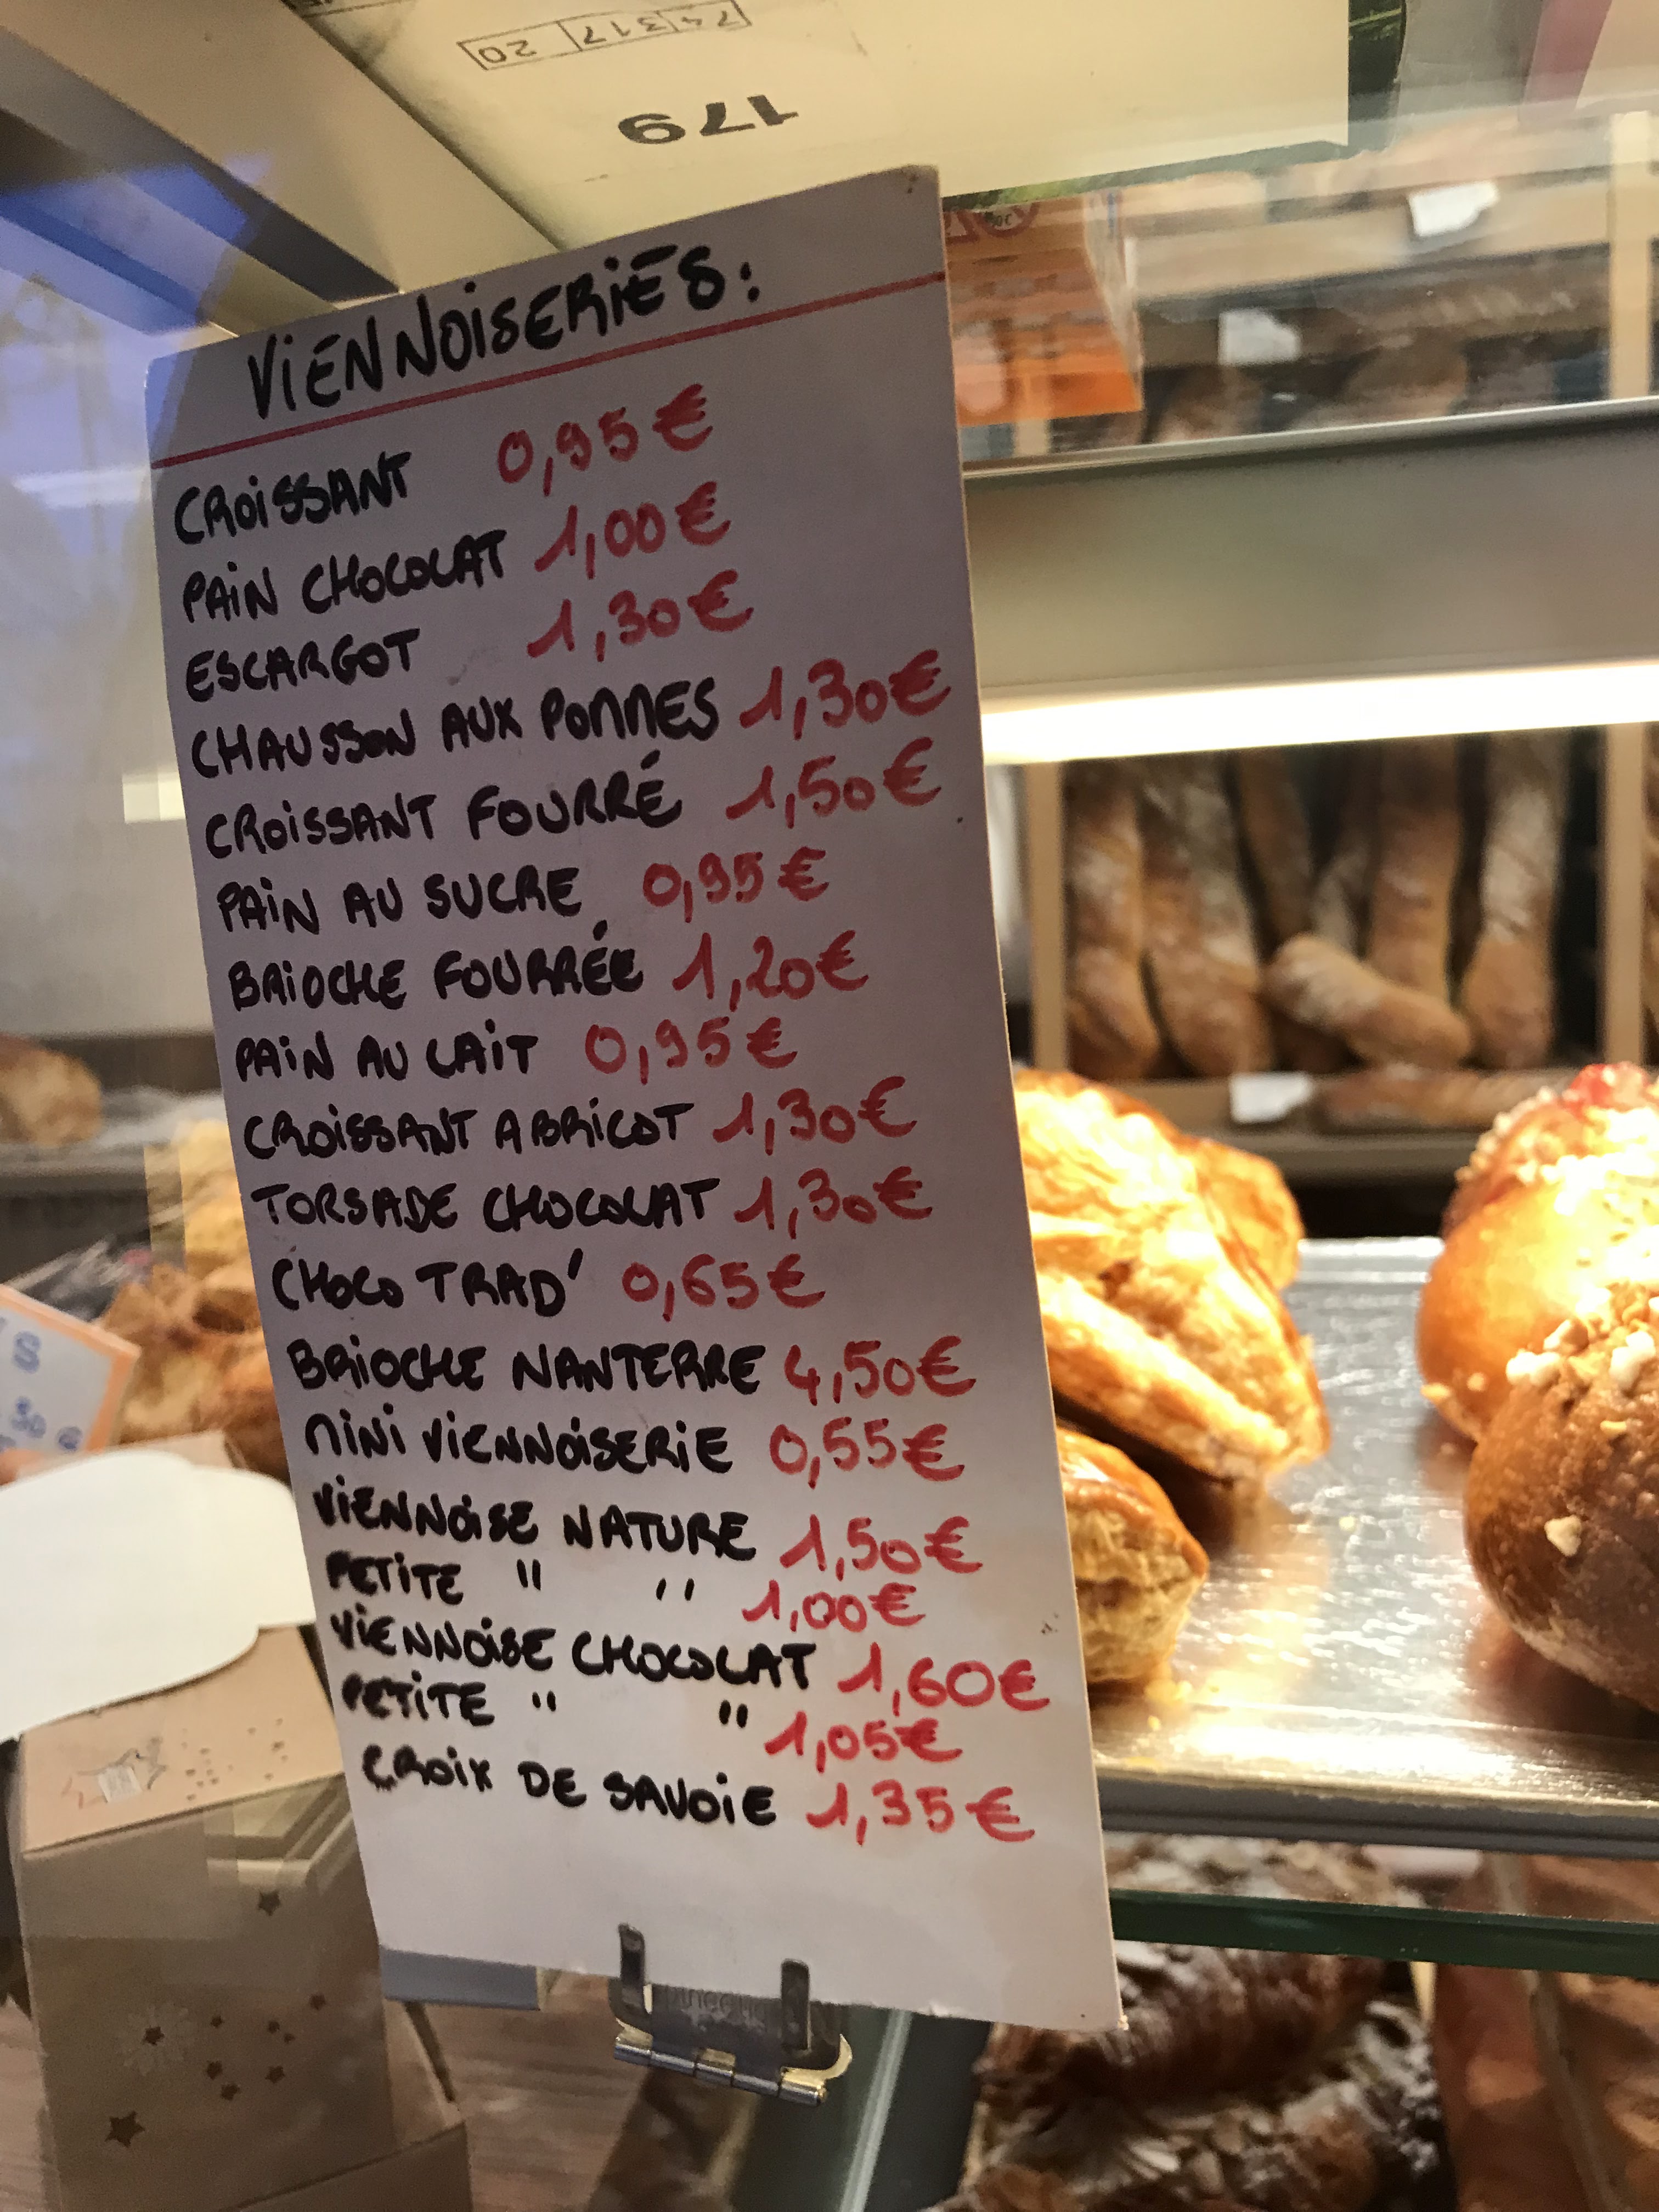 74 317 20
179
VIENNOISERIES:
CROISSANT 0,95€
PAIN CHOCOLAT 1,00€
ESCARGOT 1,30€
CHAUSSON AUX POMMES 1,30€
CROISSANT FOURRÉ 1,50€
PAIN AU SUCRE 0,95€
BRIOCHE FOURRÉE 1,20€
PAIN AU LAIT 0,95€
CROISSANT ABRICOT 1,30€
TORSADE CHOCOLAT 1,30€
CHOCO TRAD' 0,65€
BRIOCHE NANTERRE 4,50€
MINI VIENNOISERIE 0,55€
VIENNOISE NATURE 1,50€
PETITE " " 1,00€
VIENNOISE CHOCOLAT 1,60€
PETITE " " 1,05€
CROIX DE SAVOIE 1,35€